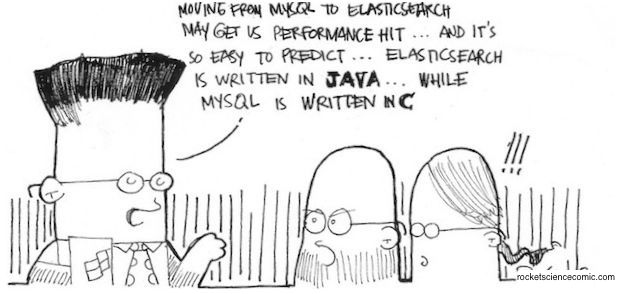 MOVING FROM MYSQL TO ELASTICSEARCH
MAY GET US PERFORMANCE HIT ... AND IT'S
SO EASY TO PREDICT ... ELASTICSEARCH
IS WRITTEN IN JAVA ... WHILE
MYSQL IS WRITTEN IN C
!!!
rocketsciencecomic.com